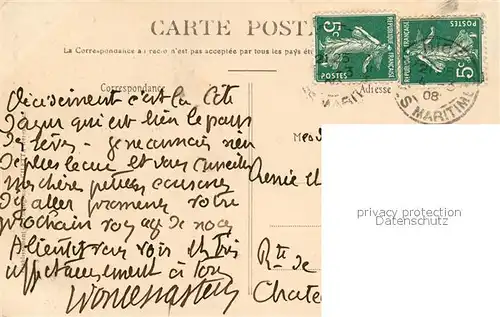 CARTE POSTA
La Correspondance au recto n'est pas acceptée par tous les pays étr
5c POSTES RÉPUBLIQUE FRANÇAISE
5c POSTES RÉPUBLIQUE FRANÇAISE
08
S MARITIME
Correspondance
Adresse
Décisément c'est la Côte
d'azur qui est bien le pays
de rêves - je ne connais rien
de plus beau et vous conseille
mes chères petites cousines
d'y aller promener votre
prochain voyage de noce
A bientôt vous voir et très
affectueusement à tous
Renée
Rte de
Chate
privacy protection
Datenschutz